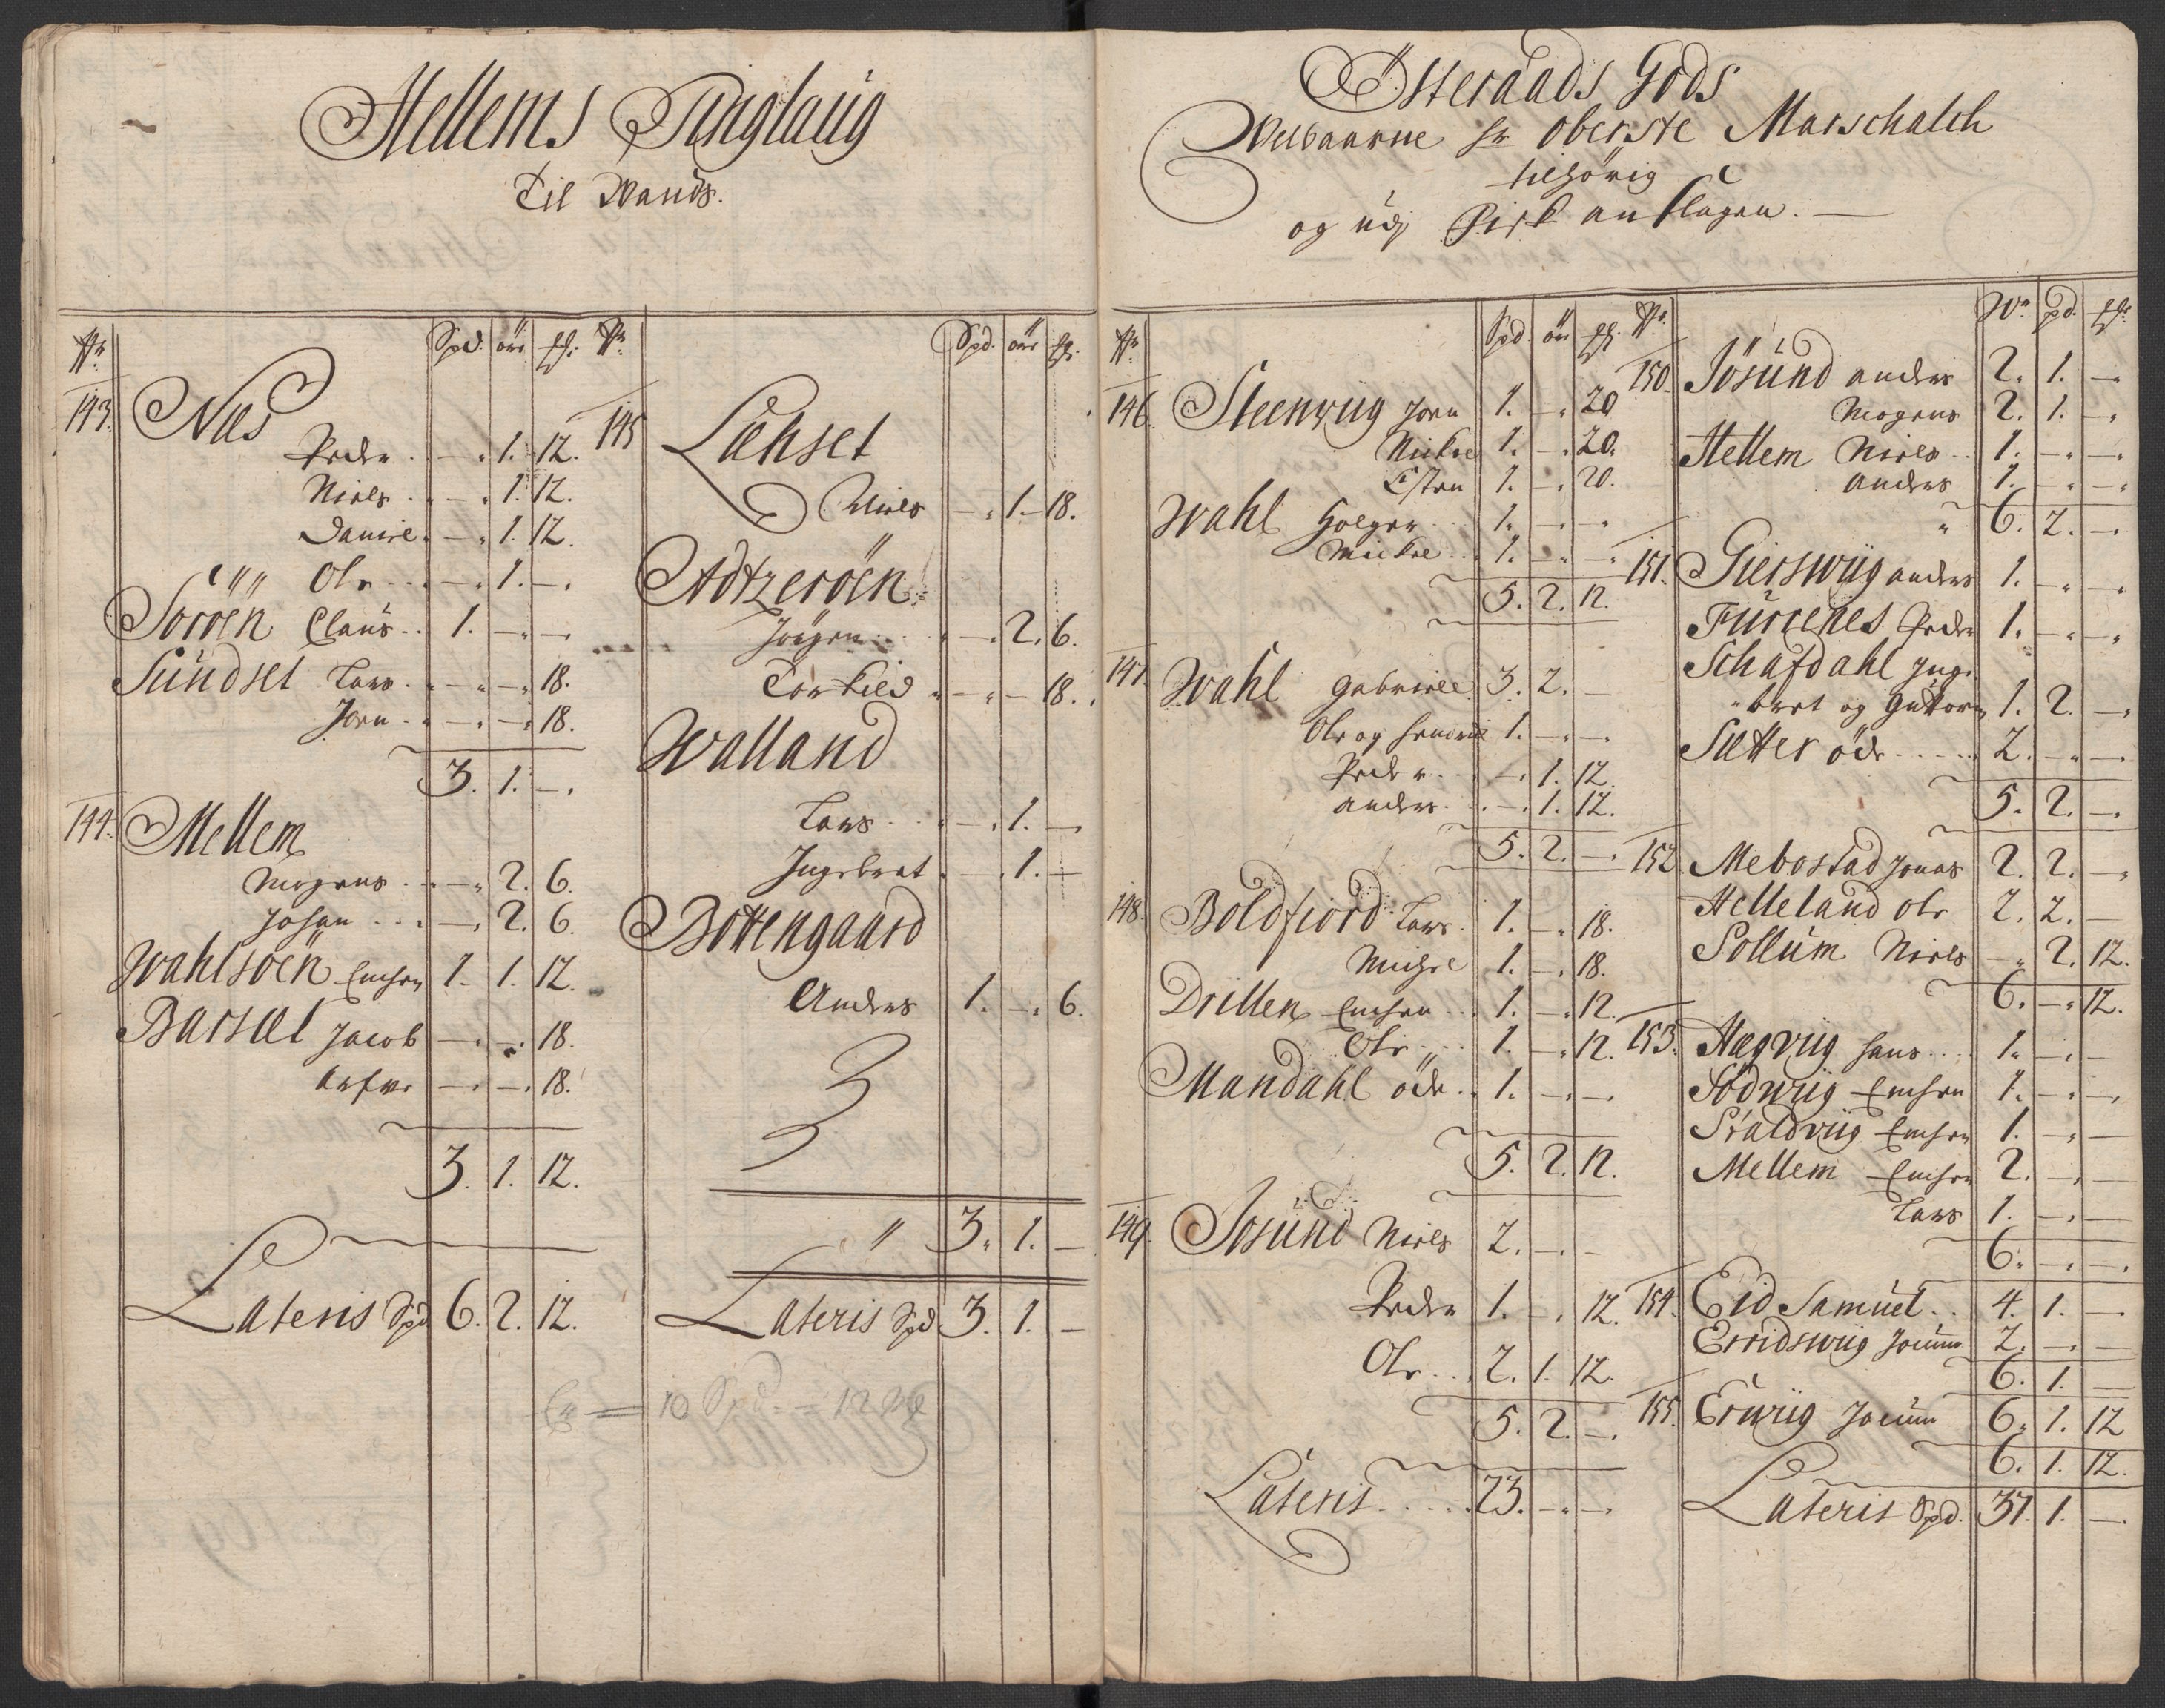 Mellems Tinglaug
Til Wands.
No Spd. öre ß.
143. Næs
Peder . — . 1. 12.
Niels . — . 1. 12.
Daniel . — . 1. 12.
Ole . — . 1. — .
Soröen Claus . . 1. — . — .
Sundset Lars . — . — . 18.
Jon . — . — . 18.
3. 1. — .
144. Mellem
Mogens . — . 2. 6.
Johan . . . — . 2. 6.
Wahlsöen Einhen 1. 1. 12.
Barsæt Jacob — . — . 18.
— . — . 18.
3. 1. 12.
Lateris Spd 6. 2. 12.
No Spd. öre ß.
145 Læhset
Niels — . 1. — 18.
Adtzeröen
Jörgen . . . — . 2. 6.
Torkild . — . — 18.
Walland
Lars . . . — . 1. —
Ingebret . — . 1. —
Bottengaard
Anders 1. — . 6.
" 3. 1. —
Lateris Spd 3. 1. —
10 Spd. = 12
Østeraads Gods
Welbaarne hr Oberste Marschalch
tilhörig
og udj Fisk anslagen. —
No Spd. öre ß.
146. Steenwiig Jon 1. — . 20
Mickel 1. — . 20.
Esten 1. — . 20.
Wahl Holger . . 1. — . — .
Mickel . . 1. — . — .
5. 2. 12.
147. Wahl Gabriel 3. 2. —
Ole og 1. — . — .
Peder . . — . 1. 12.
Anders . . — . 1. 12.
5. 2. — .
148. Boldfiord Lars . 1. — . 18.
Michel 1. — . 18.
Drillen Einhen . . 1. — . 12.
Ole . . . 1. — . 12.
Mandahl öde . . 1. — . — .
5. 2. 12.
149. Josund Niels 2. — . —
Peder 1. — . 12.
Ole . . . 2. 1. 12.
5. 2. — .
Lateris . . . . . 23. — . — .
No W. pd. ß.
150. Jösund Anders 2. 1. — .
Mogens 2. 1. — .
Hellem Niels . . 1. — . — .
Anders 1. — . — .
" 6. 2. — .
151. Gierswiig Anders 1. — . — .
Furrenes Peder 1. — . — .
Schafdahl Inge-
bert og Guttorm 1. 2. — .
Sætter öde . . . . . 2. — . — .
5. 2. — .
152. Mebostad Jonas 2. 2. — .
Helleland Ole 2. 2. —
Sollum Niels — . 2. 12.
6. — . 12.
153. Hægviig Hans . . . 1. — . —
Södwiig Einhen 1. — . — .
Staldviig Einhen 1. — . —
Mellem Einhen 2. — . —
Lars 1. — . —
6. — . — .
154. Eid Samuel . . 4. 1. — .
Erridswiig Jocum 2. — . —
6. 1. —
155. Erwiig Jocum 6. 1. 12
6. 1. 12.
Lateris Spd. 37. 1. — .